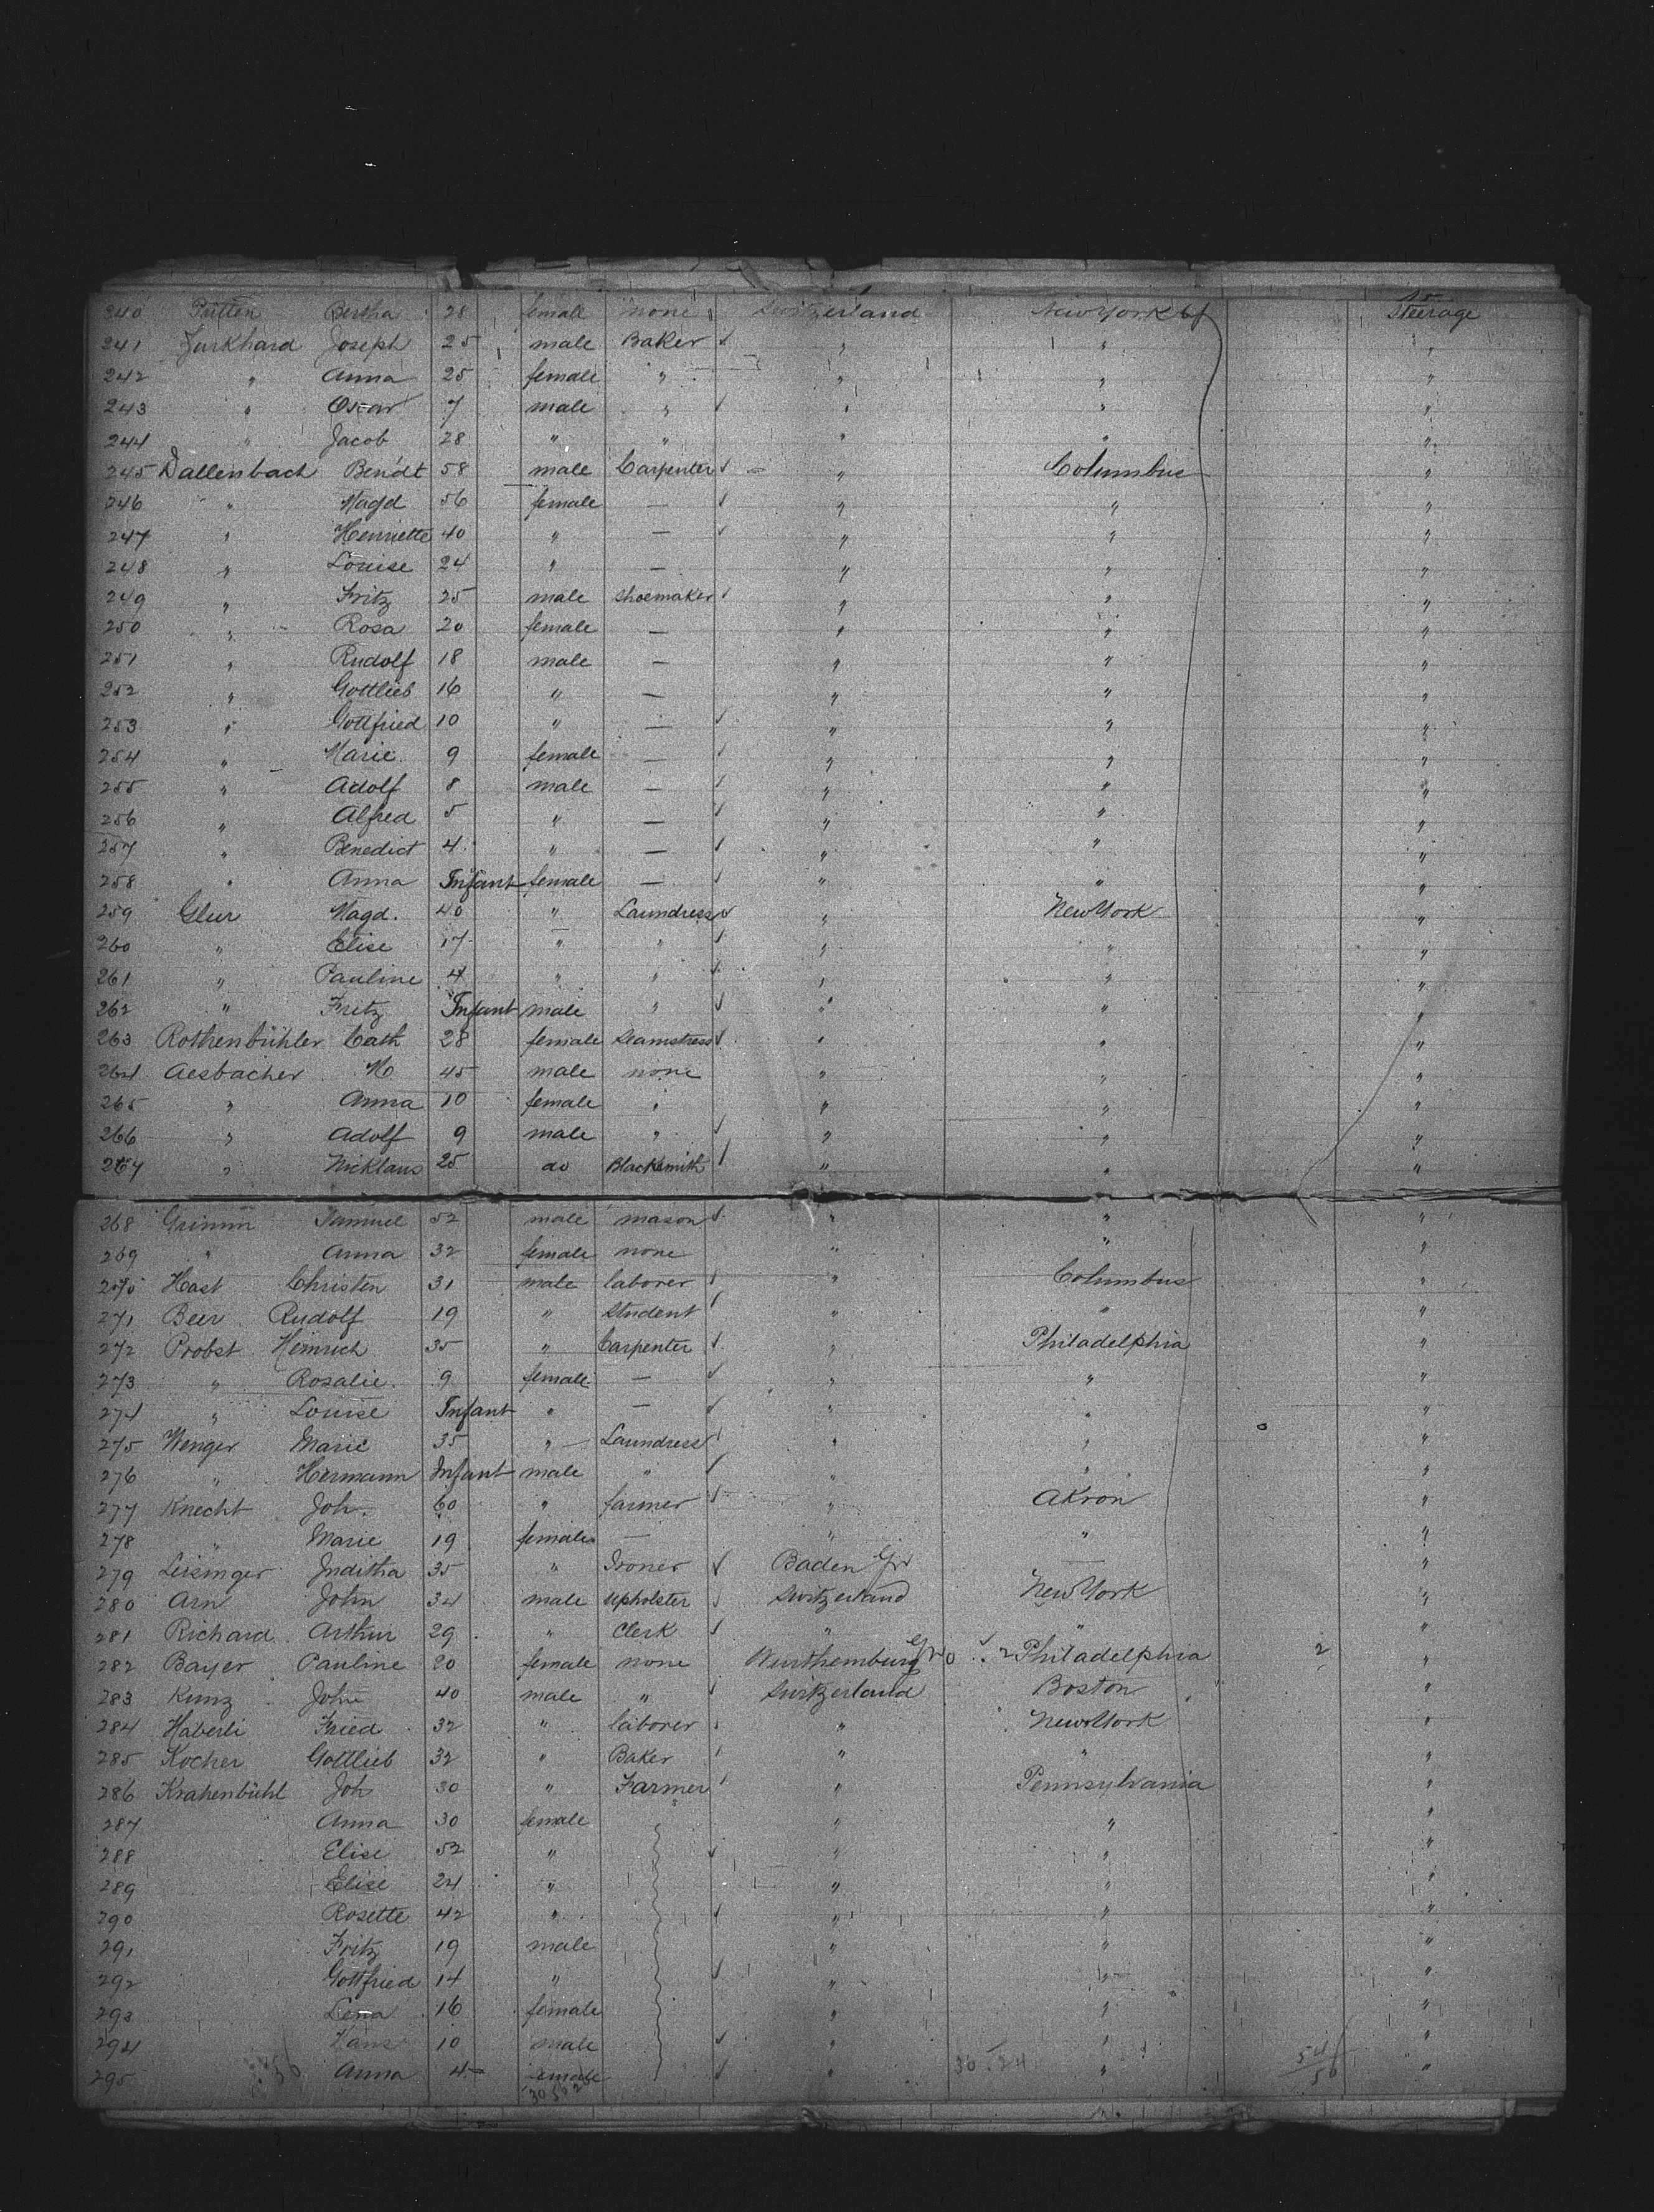 240 Pütten Bertha 28 female none Switzerland New York Steerage
241 Zurkhard Joseph 25 male Baker " " "
242 " Anna 25 female " " " "
243 " Oscar 7 male " " " "
244 " Jacob 28 " " " " "
245 Dallenbach Bendt 58 male Carpenter " Columbus "
246 " Magd 56 female — " " "
247 " Henriette 40 " — " " "
248 " Louise 24 " — " " "
249 " Fritz 25 male Shoemaker " " "
250 " Rosa 20 female — " " "
251 " Rudolf 18 male — " " "
252 " Gottlieb 16 " — " " "
253 " Gottfried 10 " — " " "
254 " Marie 9 female — " " "
255 " Adolf 8 male — " " "
256 " Alfred 5 " — " " "
257 " Benedict 4 " — " " "
258 " Anna Infant female — " " "
259 Glur Magd. 40 " Laundress " New York "
260 " Elise 17 " " " " "
261 " Pauline 4 " " " " "
262 " Fritz Infant male " " " "
263 Rothenbühler Cath 28 female Seamstress " " "
264 Aesbacher M 45 male none " " "
265 " Anna 10 female " " " "
266 " Adolf 9 male " " " "
267 " Nicklaus 25 do Blacksmith " " "
268 Grimm Samuel 52 male mason " " "
269 " Anna 32 female none " " "
270 Hast Christen 31 male laborer " Columbus "
271 Beer Rudolf 19 " Student " " "
272 Probst Heinrich 35 " Carpenter " Philadelphia "
273 " Rosalie 9 female — " " "
274 " Louise Infant " — " " "
275 Wenger Marie 35 " Laundress " " "
276 " Hermann Infant male " " " "
277 Knecht Joh. 60 " farmer " Akron "
278 " Marie 19 female — " " "
279 Leisinger Juditha 35 " Ironer Baden Gr — "
280 Arn John 34 male Upholster Switzerland New York "
281 Richard Arthur 29 " Clerk " " "
282 Bayer Pauline 20 female none Wurthemburg Philadelphia 2 "
283 Kunz John 40 male " Switzerland Boston "
284 Häberli Fried 32 " laborer " New York "
285 Kocher Gottlieb 32 " Baker " " "
286 Krahenbühl Joh 30 " Farmer " Pennsylvania "
287 Anna 30 female " " "
288 Elise 52 " " " "
289 Elise 24 " " " "
290 Rosette 42 " " " "
291 Fritz 19 male " " "
292 Gottfried 14 " " " "
293 Lena 16 female " " "
294 Hans 10 male " " "
295 Anna 4 female " " "